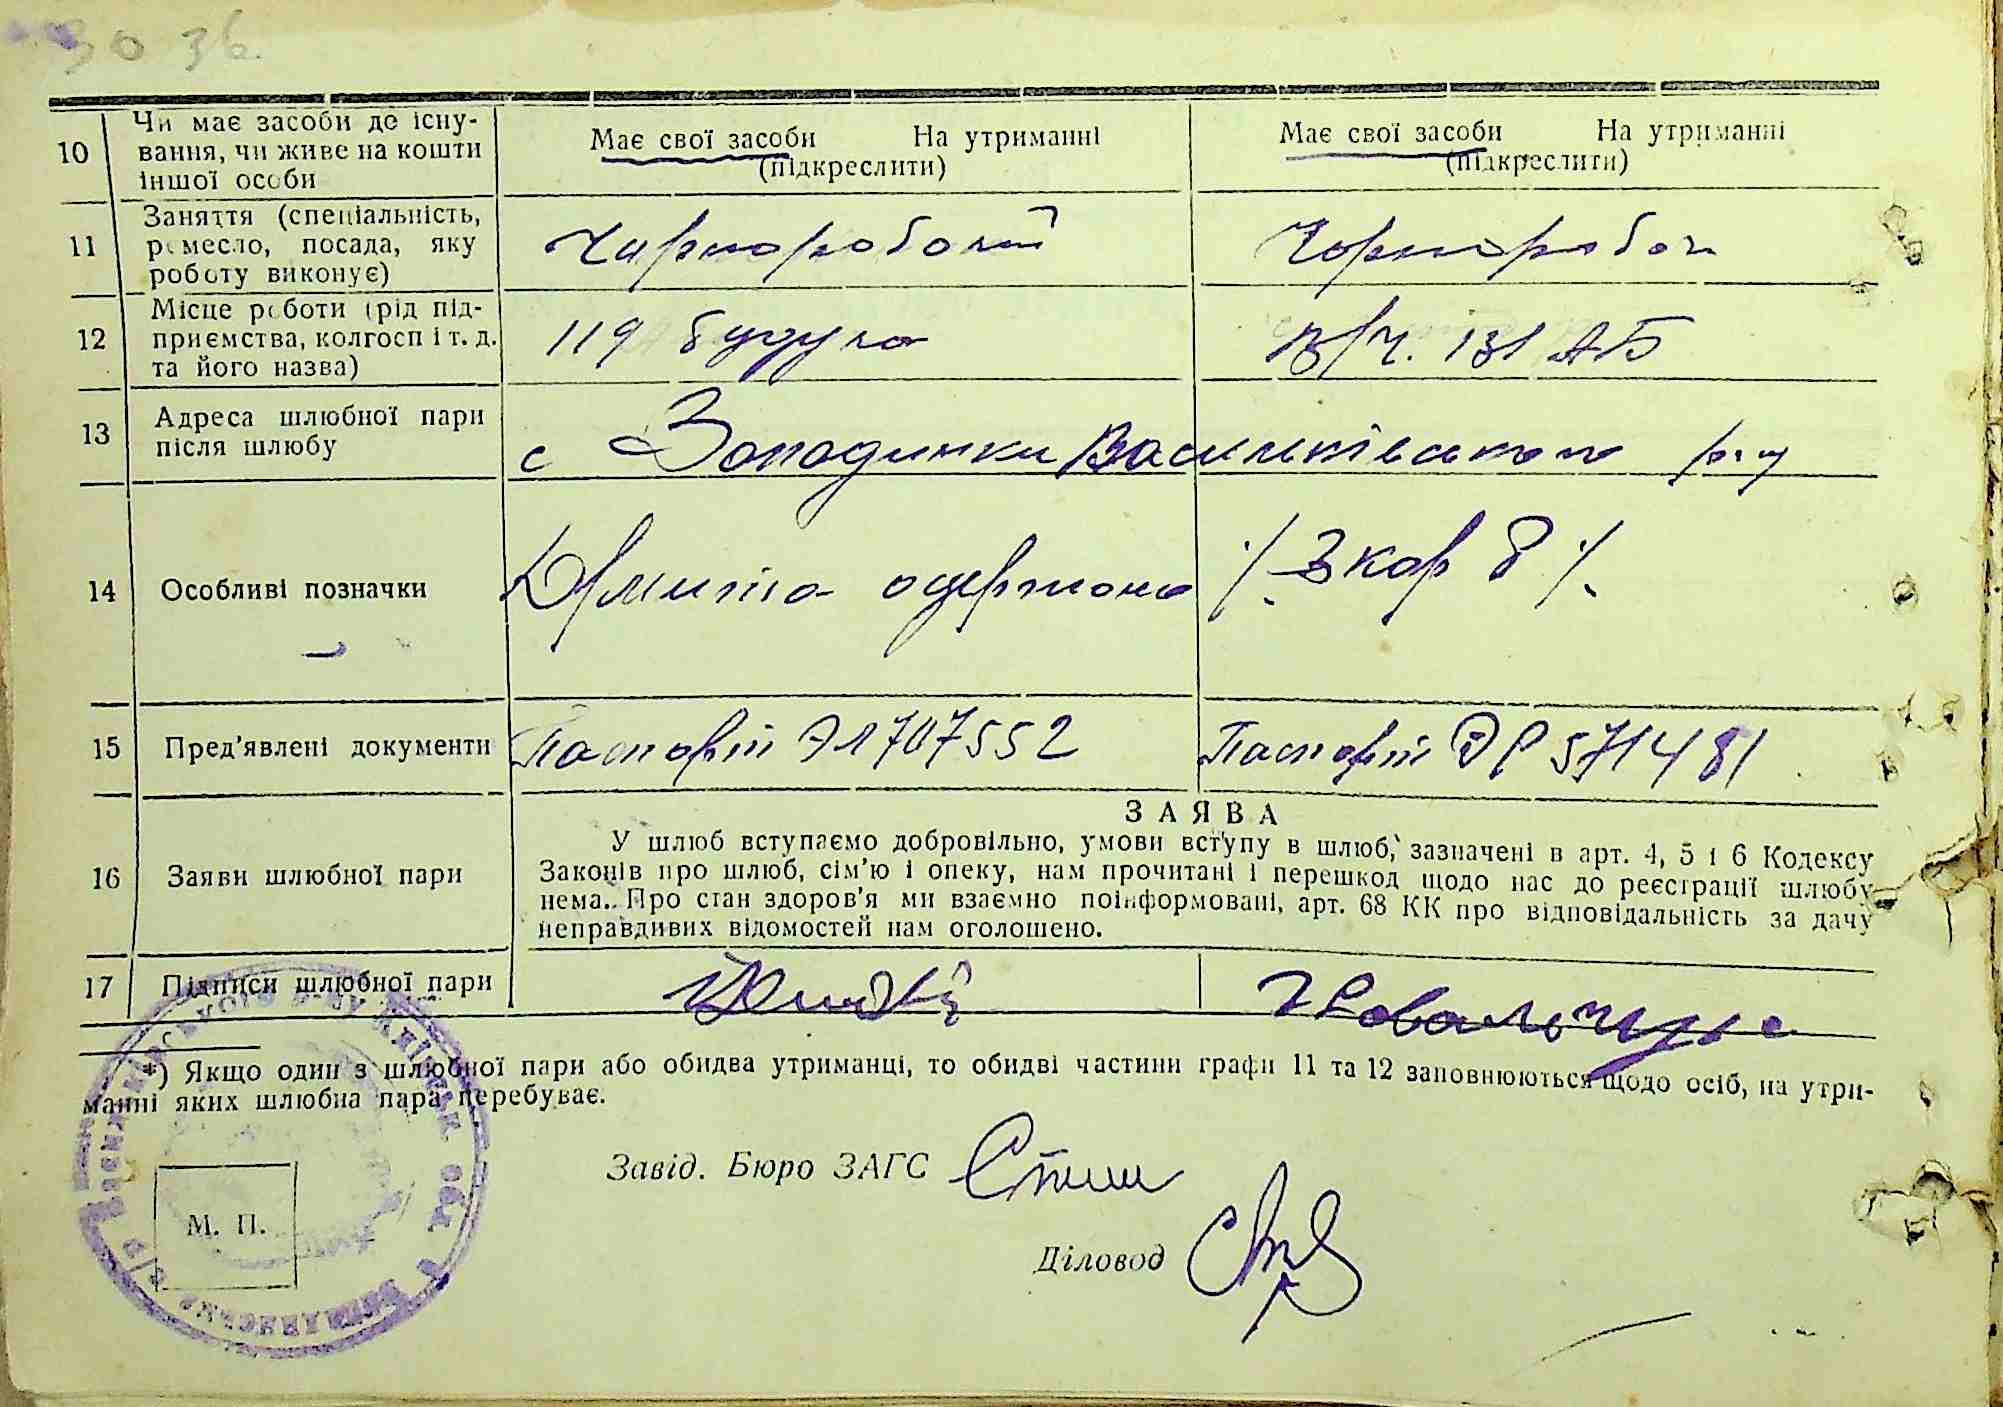 30 36.
10 Чи має засоби до існу-
вання, чи живе на кошти
іншої особи
Має свої засоби На утриманні
(підкреслити)
Має свої засоби На утриманні
(підкреслити)
11 Заняття (спеціальність,
ремесло, посада, яку
роботу виконує)
Чорноробочий
Чорнороboч
12 Місце роботи (рід під-
приємства, колгосп і т. д.
та його назва)
119
в/ч. 131 АБ
13 Адреса шлюбної пари
після шлюбу
с Западинки Васильківського р-ну
14 Особливі позначки
одержано
15 Пред'явлені документи
Паспорт 707552
Паспорт 571481
16 Заяви шлюбної пари
ЗАЯВА
У шлюб вступаємо добровільно, умови вступу в шлюб, зазначені в арт. 4, 5 і 6 Кодексу
Законів про шлюб, сім'ю і опеку, нам прочитані і перешкод щодо нас до реєстрації шлюбу
нема. Про стан здоров'я ми взаємно поінформовані, арт. 68 КК про відповідальність за дачу
неправдивих відомостей нам оголошено.
17 Підписи шлюбної пари
Ковальчук
*) Якщо один з шлюбної пари або обидва утриманці, то обидві частини графи 11 та 12 заповнюються щодо осіб, на утри-
манні яких шлюбна пара перебуває.
Завід. Бюро ЗАГС
Діловод
М. П.